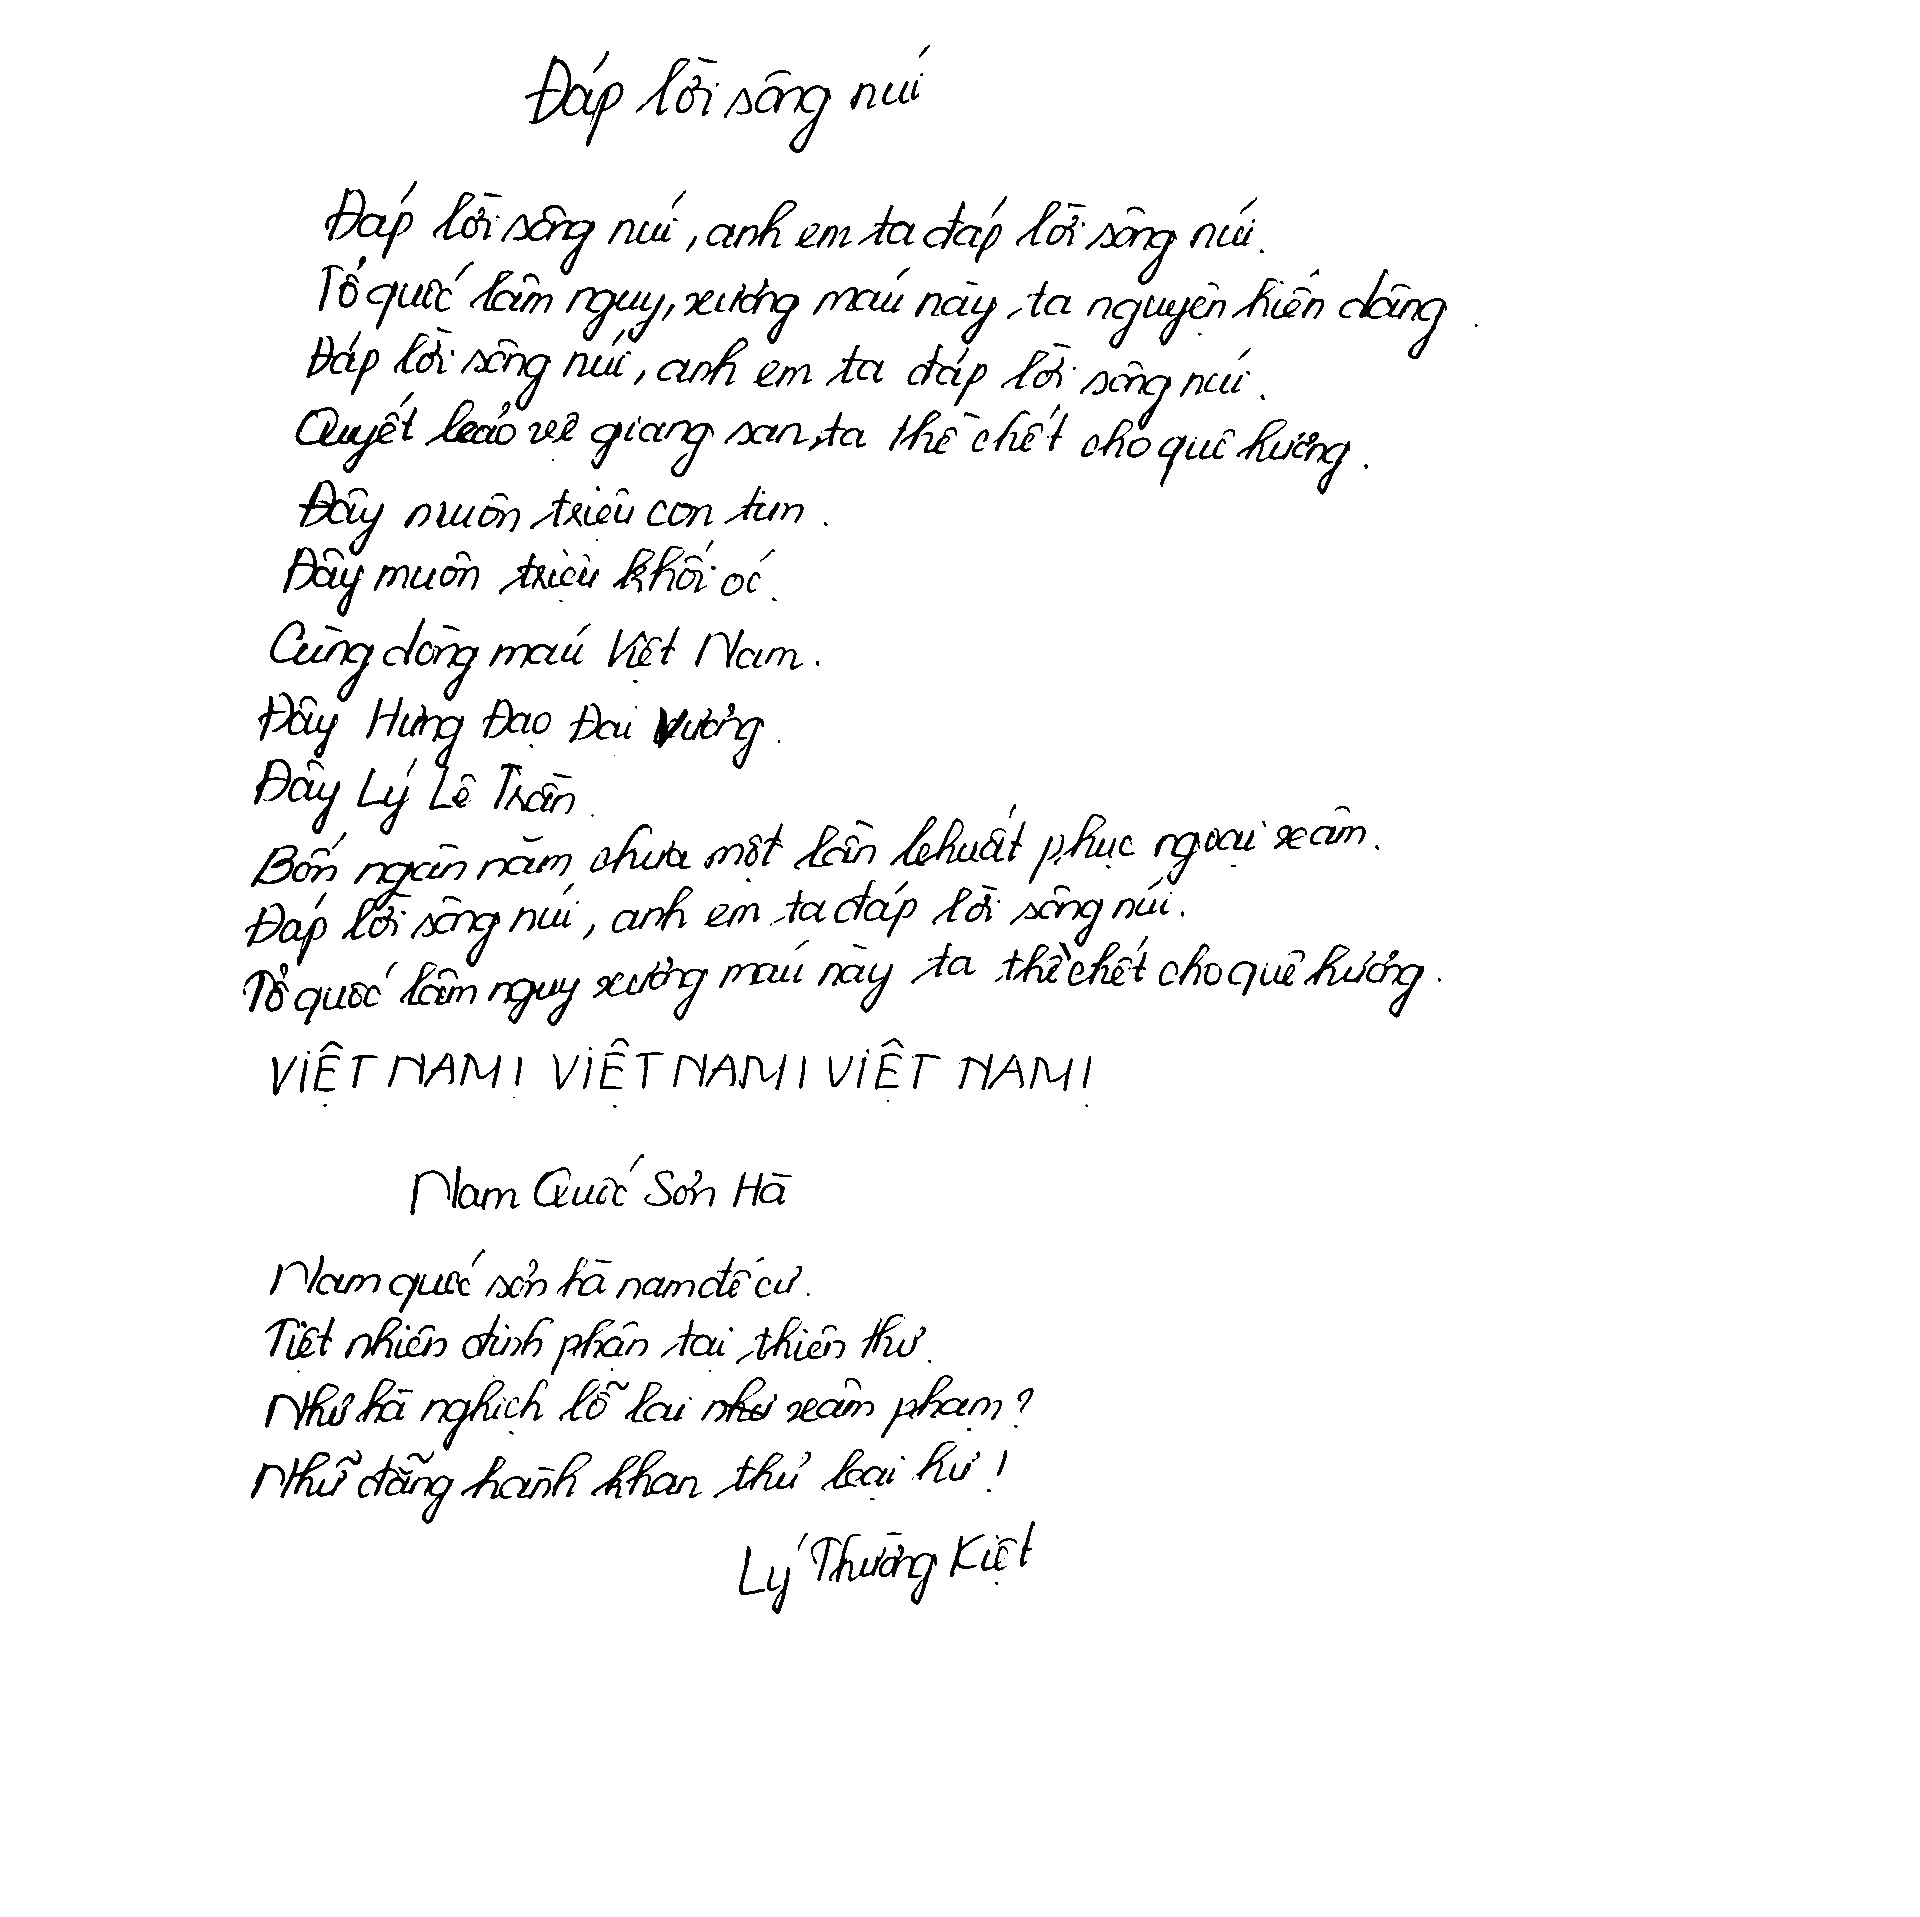 Đáp lời sông núi
Đáp lời sông núi, anh em ta đáp lời sông núi.
Tổ quốc lâm nguy, xương máu này, ta nguyện hiến dâng.
Đáp lời sông núi, anh em ta đáp lời sông núi.
Quyết bảo vệ giang san, ta thề chết cho quê hương.
Đây muôn triệu con tim.
Đây muôn triệu khối óc.
Cùng dòng máu Việt Nam.
Đây Hưng Đạo Đại Vương.
Đây Lý Lê Trần.
Bốn ngàn năm chưa một lần khuất phục ngoại xâm.
Đáp lời sông núi, anh em ta đáp lời sông núi.
Tổ quốc lâm nguy xương máu này ta thề chết cho quê hương.
VIỆT NAM! VIỆT NAM! VIỆT NAM!
Nam Quốc Sơn Hà
Nam quốc sơn hà nam đế cư.
Tiệt nhiên định phận tại thiên thư.
Như hà nghịch lỗ lai như xâm phạm?
Nhữ đẳng hành khan thủ bại hư!
Lý Thường Kiệt